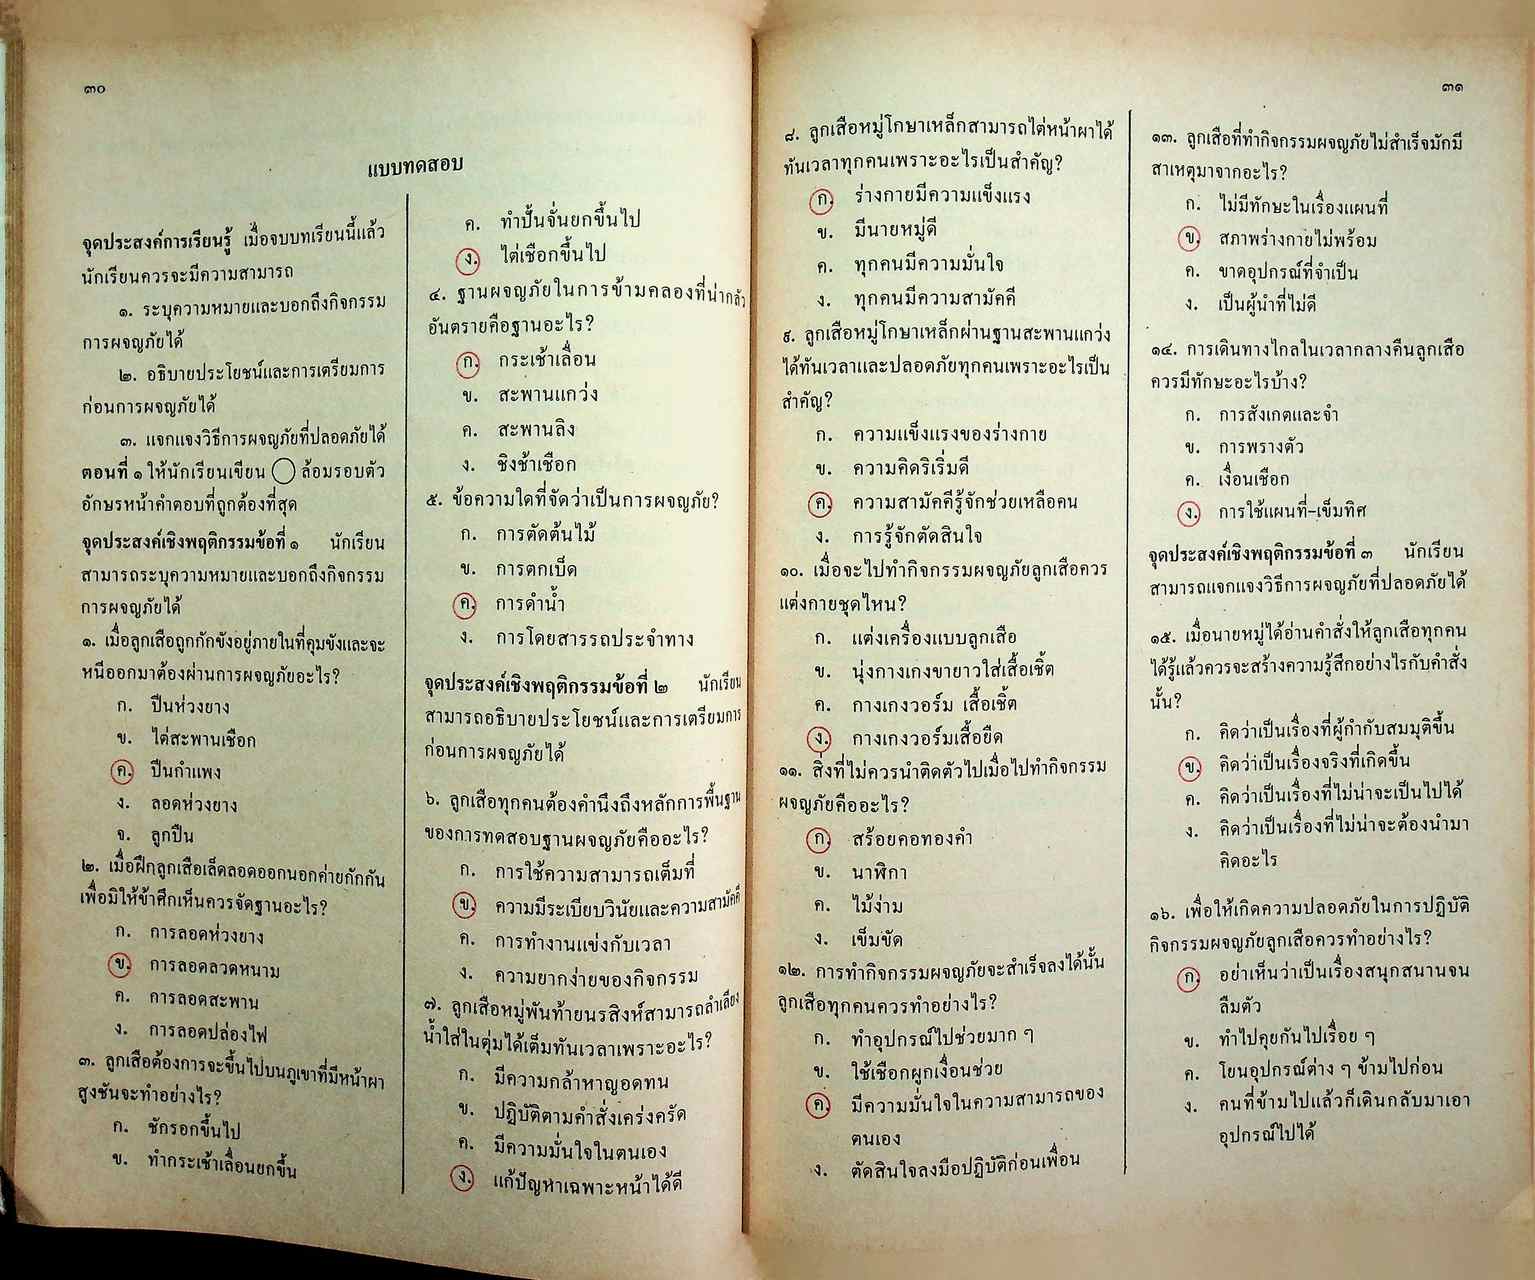 ๓๐
แบบทดสอบ
จุดประสงค์การเรียนรู้ เมื่อจบบทเรียนนี้แล้ว
นักเรียนควรจะมีความสามารถ
๑. ระบุความหมายและบอกถึงกิจกรรม
การผจญภัยได้
๒. อธิบายประโยชน์และการเตรียมการ
ก่อนการผจญภัยได้
๓. แจกแจงวิธีการผจญภัยที่ปลอดภัยได้
ตอนที่ ๑ ให้นักเรียนเขียน ◯ ล้อมรอบตัว
อักษรหน้าคำตอบที่ถูกต้องที่สุด
จุดประสงค์เชิงพฤติกรรมข้อที่ ๑ นักเรียน
สามารถระบุความหมายและบอกถึงกิจกรรม
การผจญภัยได้
๑. เมื่อลูกเสือถูกกักขังอยู่ภายในที่คุมขังและจะ
หนีออกมาต้องผ่านการผจญภัยอะไร?
ก. ปีนห่วงยาง
ข. ไต่สะพานเชือก
ค. ปีนกำแพง
ง. ลอดห่วงยาง
จ. ลูกปืน
๒. เมื่อฝึกลูกเสือเล็ดลอดออกนอกค่ายกักกัน
เพื่อมิให้ข้าศึกเห็นควรจัดฐานอะไร?
ก. การลอดห่วงยาง
ข. การลอดลวดหนาม
ค. การลอดสะพาน
ง. การลอดปล่องไฟ
๓. ลูกเสือต้องการจะขึ้นไปบนภูเขาที่มีหน้าผา
สูงชันจะทำอย่างไร?
ก. ชักรอกขึ้นไป
ข. ทำกระเช้าเลื่อนยกขึ้น
ค. ทำปั้นจั่นยกขึ้นไป
ง. ไต่เชือกขึ้นไป
๔. ฐานผจญภัยในการข้ามคลองที่น่ากลัว
อันตรายคือฐานอะไร?
ก. กระเช้าเลื่อน
ข. สะพานแกว่ง
ค. สะพานลิง
ง. ชิงช้าเชือก
๕. ข้อความใดที่จัดว่าเป็นการผจญภัย?
ก. การตัดต้นไม้
ข. การตกเบ็ด
ค. การดำน้ำ
ง. การโดยสารรถประจำทาง
จุดประสงค์เชิงพฤติกรรมข้อที่ ๒ นักเรียน
สามารถอธิบายประโยชน์และการเตรียมการ
ก่อนการผจญภัยได้
๖. ลูกเสือทุกคนต้องคำนึงถึงหลักการพื้นฐาน
ของการทดสอบฐานผจญภัยคืออะไร?
ก. การใช้ความสามารถเต็มที่
ข. ความมีระเบียบวินัยและความสามัคคี
ค. การทำงานแข่งกับเวลา
ง. ความยากง่ายของกิจกรรม
๗. ลูกเสือหมู่พันท้ายนรสิงห์สามารถลำเลียง
น้ำใส่ในตุ่มได้เต็มทันเวลาเพราะอะไร?
ก. มีความกล้าหาญอดทน
ข. ปฏิบัติตามคำสั่งเคร่งครัด
ค. มีความมั่นใจในตนเอง
ง. แก้ปัญหาเฉพาะหน้าได้ดี
๓๑
๘. ลูกเสือหมู่โกษาเหล็กสามารถไต่หน้าผาได้
ทันเวลาทุกคนเพราะอะไรเป็นสำคัญ?
ก. ร่างกายมีความแข็งแรง
ข. มีนายหมู่ดี
ค. ทุกคนมีความมั่นใจ
ง. ทุกคนมีความสามัคคี
๙. ลูกเสือหมู่โกษาเหล็กผ่านฐานสะพานแกว่ง
ได้ทันเวลาและปลอดภัยทุกคนเพราะอะไรเป็น
สำคัญ?
ก. ความแข็งแรงของร่างกาย
ข. ความคิดริเริ่มดี
ค. ความสามัคคีรู้จักช่วยเหลือคน
ง. การรู้จักตัดสินใจ
๑๐. เมื่อจะไปทำกิจกรรมผจญภัยลูกเสือควร
แต่งกายชุดไหน?
ก. แต่งเครื่องแบบลูกเสือ
ข. นุ่งกางเกงขายาวใส่เสื้อเชิ้ต
ค. กางเกงวอร์ม เสื้อเชิ้ต
ง. กางเกงวอร์มเสื้อยืด
๑๑. สิ่งที่ไม่ควรนำติดตัวไปเมื่อไปทำกิจกรรม
ผจญภัยคืออะไร?
ก. สร้อยคอทองคำ
ข. นาฬิกา
ค. ไม้ง่าม
ง. เข็มขัด
๑๒. การทำกิจกรรมผจญภัยจะสำเร็จลงได้นั้น
ลูกเสือทุกคนควรทำอย่างไร?
ก. ทำอุปกรณ์ไปช่วยมาก ๆ
ข. ใช้เชือกผูกเงื่อนช่วย
ค. มีความมั่นใจในความสามารถของ
ตนเอง
ง. ตัดสินใจลงมือปฏิบัติก่อนเพื่อน
๑๓. ลูกเสือที่ทำกิจกรรมผจญภัยไม่สำเร็จมักมี
สาเหตุมาจากอะไร?
ก. ไม่มีทักษะในเรื่องแผนที่
ข. สภาพร่างกายไม่พร้อม
ค. ขาดอุปกรณ์ที่จำเป็น
ง. เป็นผู้นำที่ไม่ดี
๑๔. การเดินทางไกลในเวลากลางคืนลูกเสือ
ควรมีทักษะอะไรบ้าง?
ก. การสังเกตและจำ
ข. การพรางตัว
ค. เงื่อนเชือก
ง. การใช้แผนที่-เข็มทิศ
จุดประสงค์เชิงพฤติกรรมข้อที่ ๓ นักเรียน
สามารถแจกแจงวิธีการผจญภัยที่ปลอดภัยได้
๑๕. เมื่อนายหมู่ได้อ่านคำสั่งให้ลูกเสือทุกคน
ได้รู้แล้วควรจะสร้างความรู้สึกอย่างไรกับคำสั่ง
นั้น?
ก. คิดว่าเป็นเรื่องที่ผู้กำกับสมมุติขึ้น
ข. คิดว่าเป็นเรื่องจริงที่เกิดขึ้น
ค. คิดว่าเป็นเรื่องที่ไม่น่าจะเป็นไปได้
ง. คิดว่าเป็นเรื่องที่ไม่น่าจะต้องนำมา
คิดอะไร
๑๖. เพื่อให้เกิดความปลอดภัยในการปฏิบัติ
กิจกรรมผจญภัยลูกเสือควรทำอย่างไร?
ก. อย่าเห็นว่าเป็นเรื่องสนุกสนานจน
ลืมตัว
ข. ทำไปคุยกันไปเรื่อย ๆ
ค. โยนอุปกรณ์ต่าง ๆ ข้ามไปก่อน
ง. คนที่ข้ามไปแล้วก็เดินกลับมาเอา
อุปกรณ์ไปได้